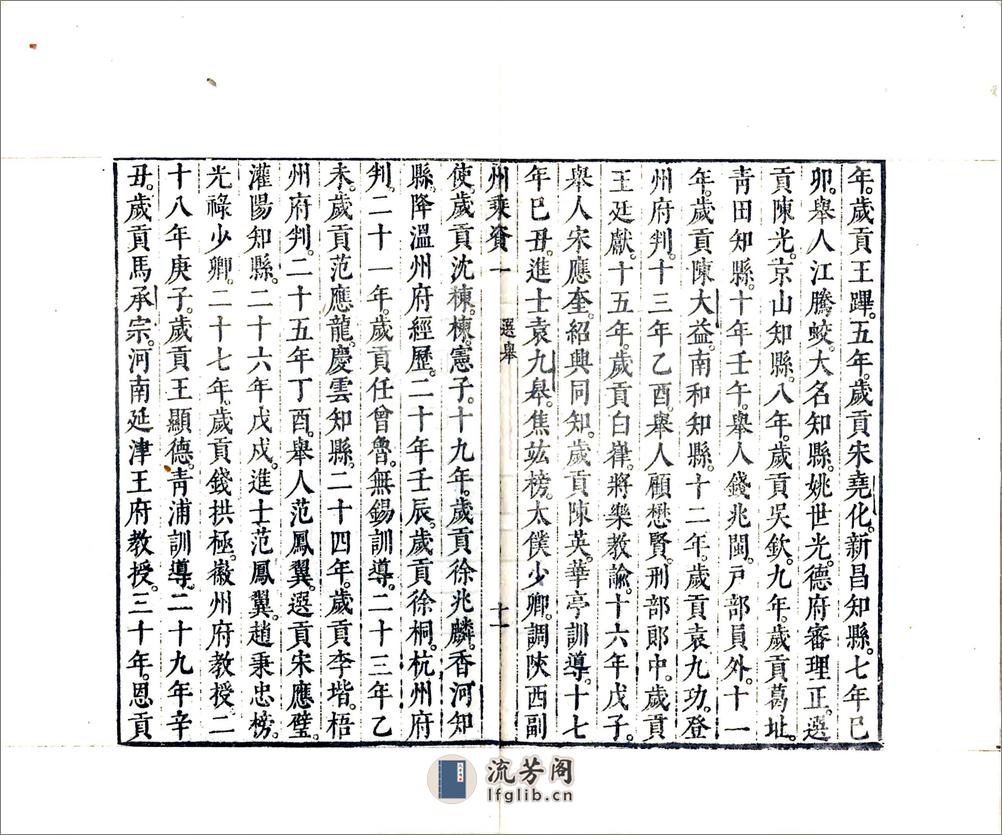 年。歲貢王蹕。五年。歲貢宋堯化。新昌知縣。七年已
卯。舉人江騰蛟。大名知縣。姚世光。德府審理正。選
貢陳光。京山知縣。八年。歲貢吳欽。九年。歲貢葛址。
青田知縣。十年壬午。舉人錢兆閩。戸部員外。十一
年。歲貢陳大益。南和知縣。十二年。歲貢袁九功。登
州府判。十三年乙酉。舉人顧懋賢。刑部郎中。歲貢
王廷獻。十五年。歲貢白律。將樂教諭。十六年戊子。
舉人宋應奎。紹興同知。歲貢陳英。華亭訓導。十七
年巳丑。進士袁九皋。焦竑榜。太僕少卿。調陝西副
州乘資一 選舉 十一
使。歲貢沈棟。棟。憲子。十九年。歲貢徐兆麟。香河知
縣。降溫州府經歷。二十年壬辰。歲貢徐桐。杭州府
判。二十一年。歲貢任曾魯。無錫訓導。二十三年乙
未。歲貢范應龍。慶雲知縣。二十四年。歲貢李堦。梧
州府判。二十五年丁酉。舉人范鳳翼。選貢宋應璧。
灌陽知縣。二十六年戊戌。進士范鳳翼。趙秉忠榜。
光祿少卿。二十七年。歲貢錢拱極。徽州府教授。二
十八年庚子。歲貢王顯德。青浦訓導。二十九年辛
丑。歲貢馬承宗。河南延津王府教授。三十年。恩貢
流芳阁
lfglib.cn